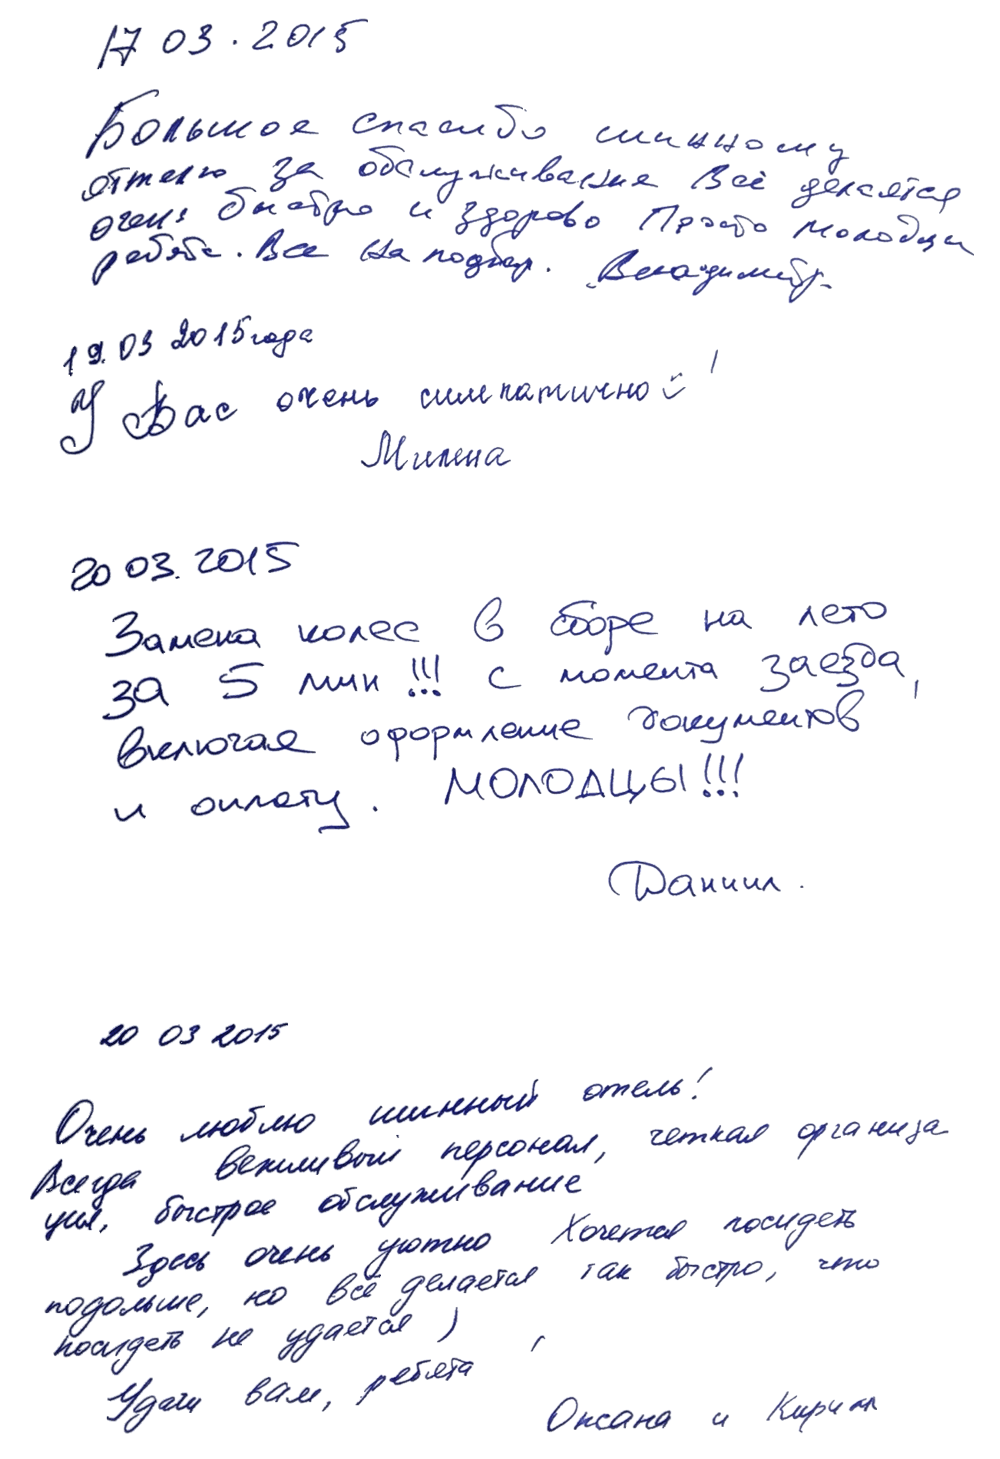 17 03.2015
Большое спасибо шинному
отелю за обслуживание Всё делается
очень быстро и здорово Просто молодцы
ребята. Все на подбор. Владимир.
19.03 2015 года
У Вас очень симпатично !
Милена
20 03.2015
Замена колес в сборе на лето
за 5 мин!!! с момента заезда,
включая оформление документов
и оплату. МОЛОДЦЫ!!!
Даниил.
20 03 2015
Очень люблю шинный отель!
Всегда вежливый персонал, четкая организа
ция, быстрое обслуживание
Здесь очень уютно Хочется посидеть
подольше, но всё делается так быстро, что
посидеть не удается )
Удачи вам, ребята !
Оксана и Кирилл